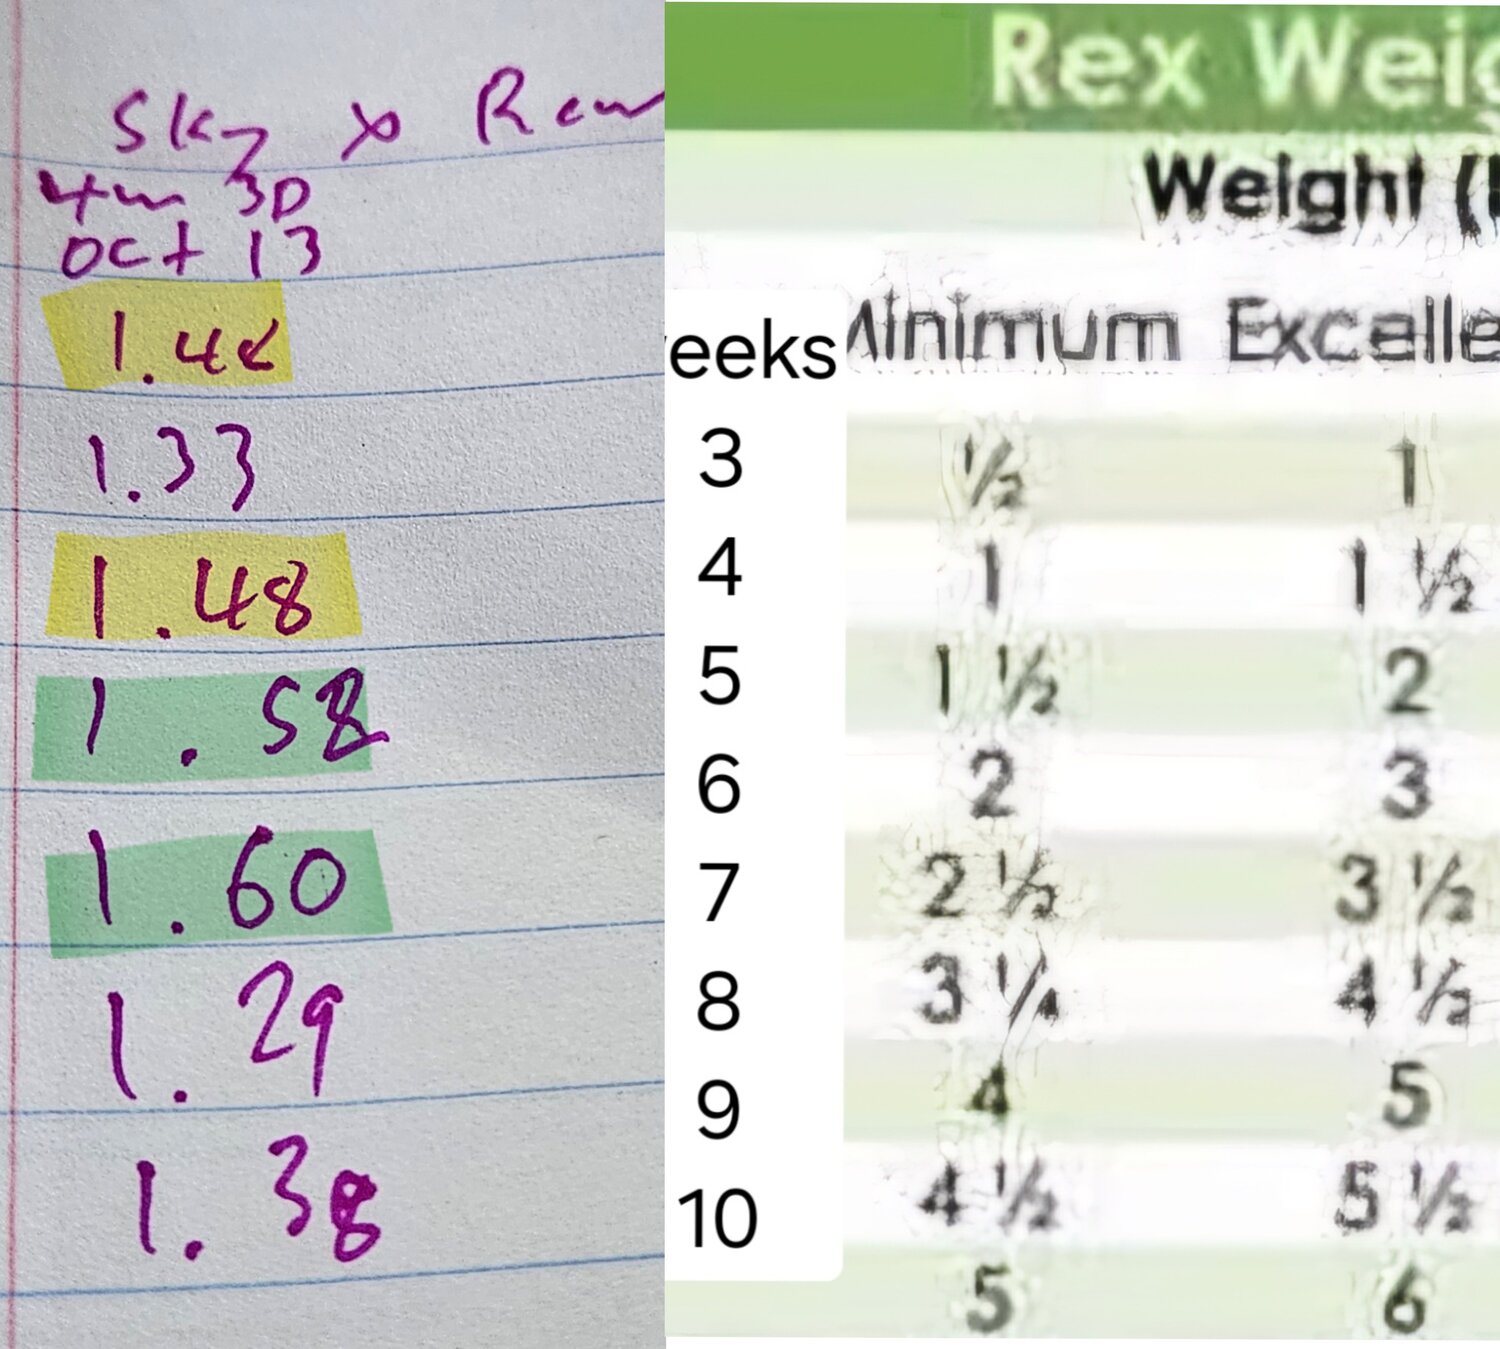 Sky x
4w 3D
Oct 13
1.33
1.48
1.58
1.60
1.29
1.38
Rex Weig
Weight (
eeks Minimum Excelle
3 ½ 1
4 1 1 ½
5 1 ½ 2
6 2 3
7 2 ½ 3 ½
8 3 ¼ 4 ½
9 4 5
10 4 ½ 5 ½
5 6